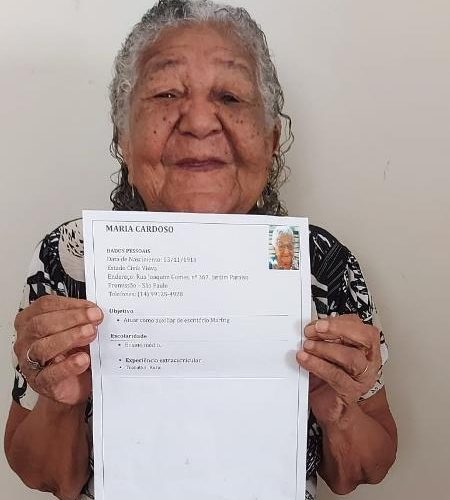 MARIA CARDOSO
DADOS PESSOAIS
Data de Nascimento: 13/11/1918
Estado Civil: Viúva
Endereço: Rua Joaquim Gomes, nº 367, Jardim Paraíso
Promissão – São Paulo
Telefones: (14) 99
Objetivo
• Atuar como auxiliar de escritório
Escolaridade
• Ensino médio.
• Experiência extracurricular